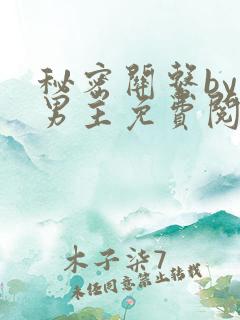 秘密關繫by
男主免費閱
木子柒7
未经同意禁止转载